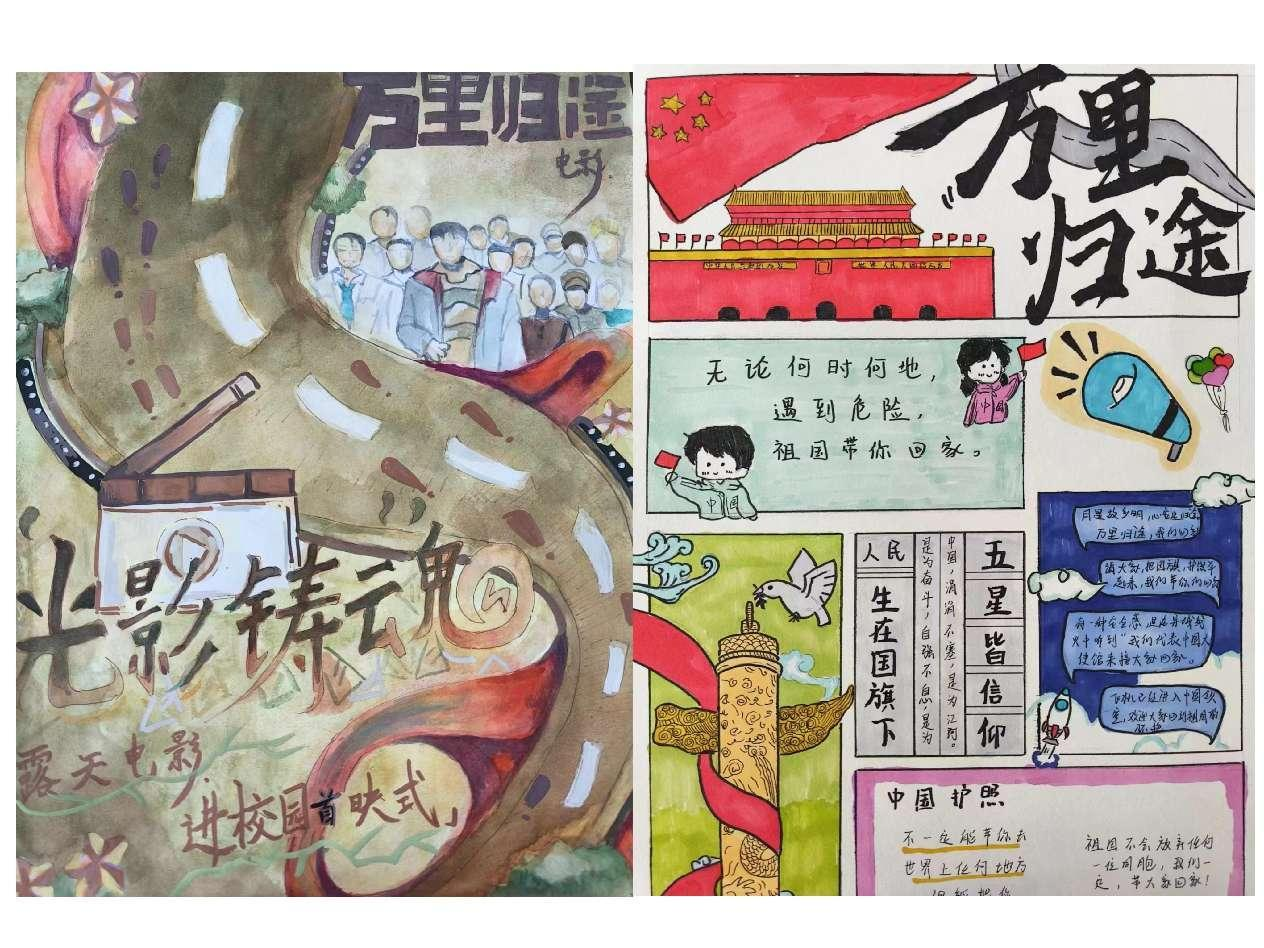 万里归途
电影
光影铸魂
露天电影
进校园首映式」
万里
归途
无论何时何地，
遇到危险，
祖国带你回家。
中国
中国
人民
生在国旗下
中国，涓涓不塞，是为江河。
是为奋斗，自强不息，是为
五星皆信仰
万里归途，我们
请大家，把国旗，护照举
起来，我们带你们回家
火中听到“我们代表中国大
使馆来接大家回家。
飞机已经进入中国领
空，欢迎大家回到祖国的
怀抱
中国护照
不一定能带你去
世界上任何地方
祖国不会放弃任何
一位同胞，我们一
定，带大家回家！